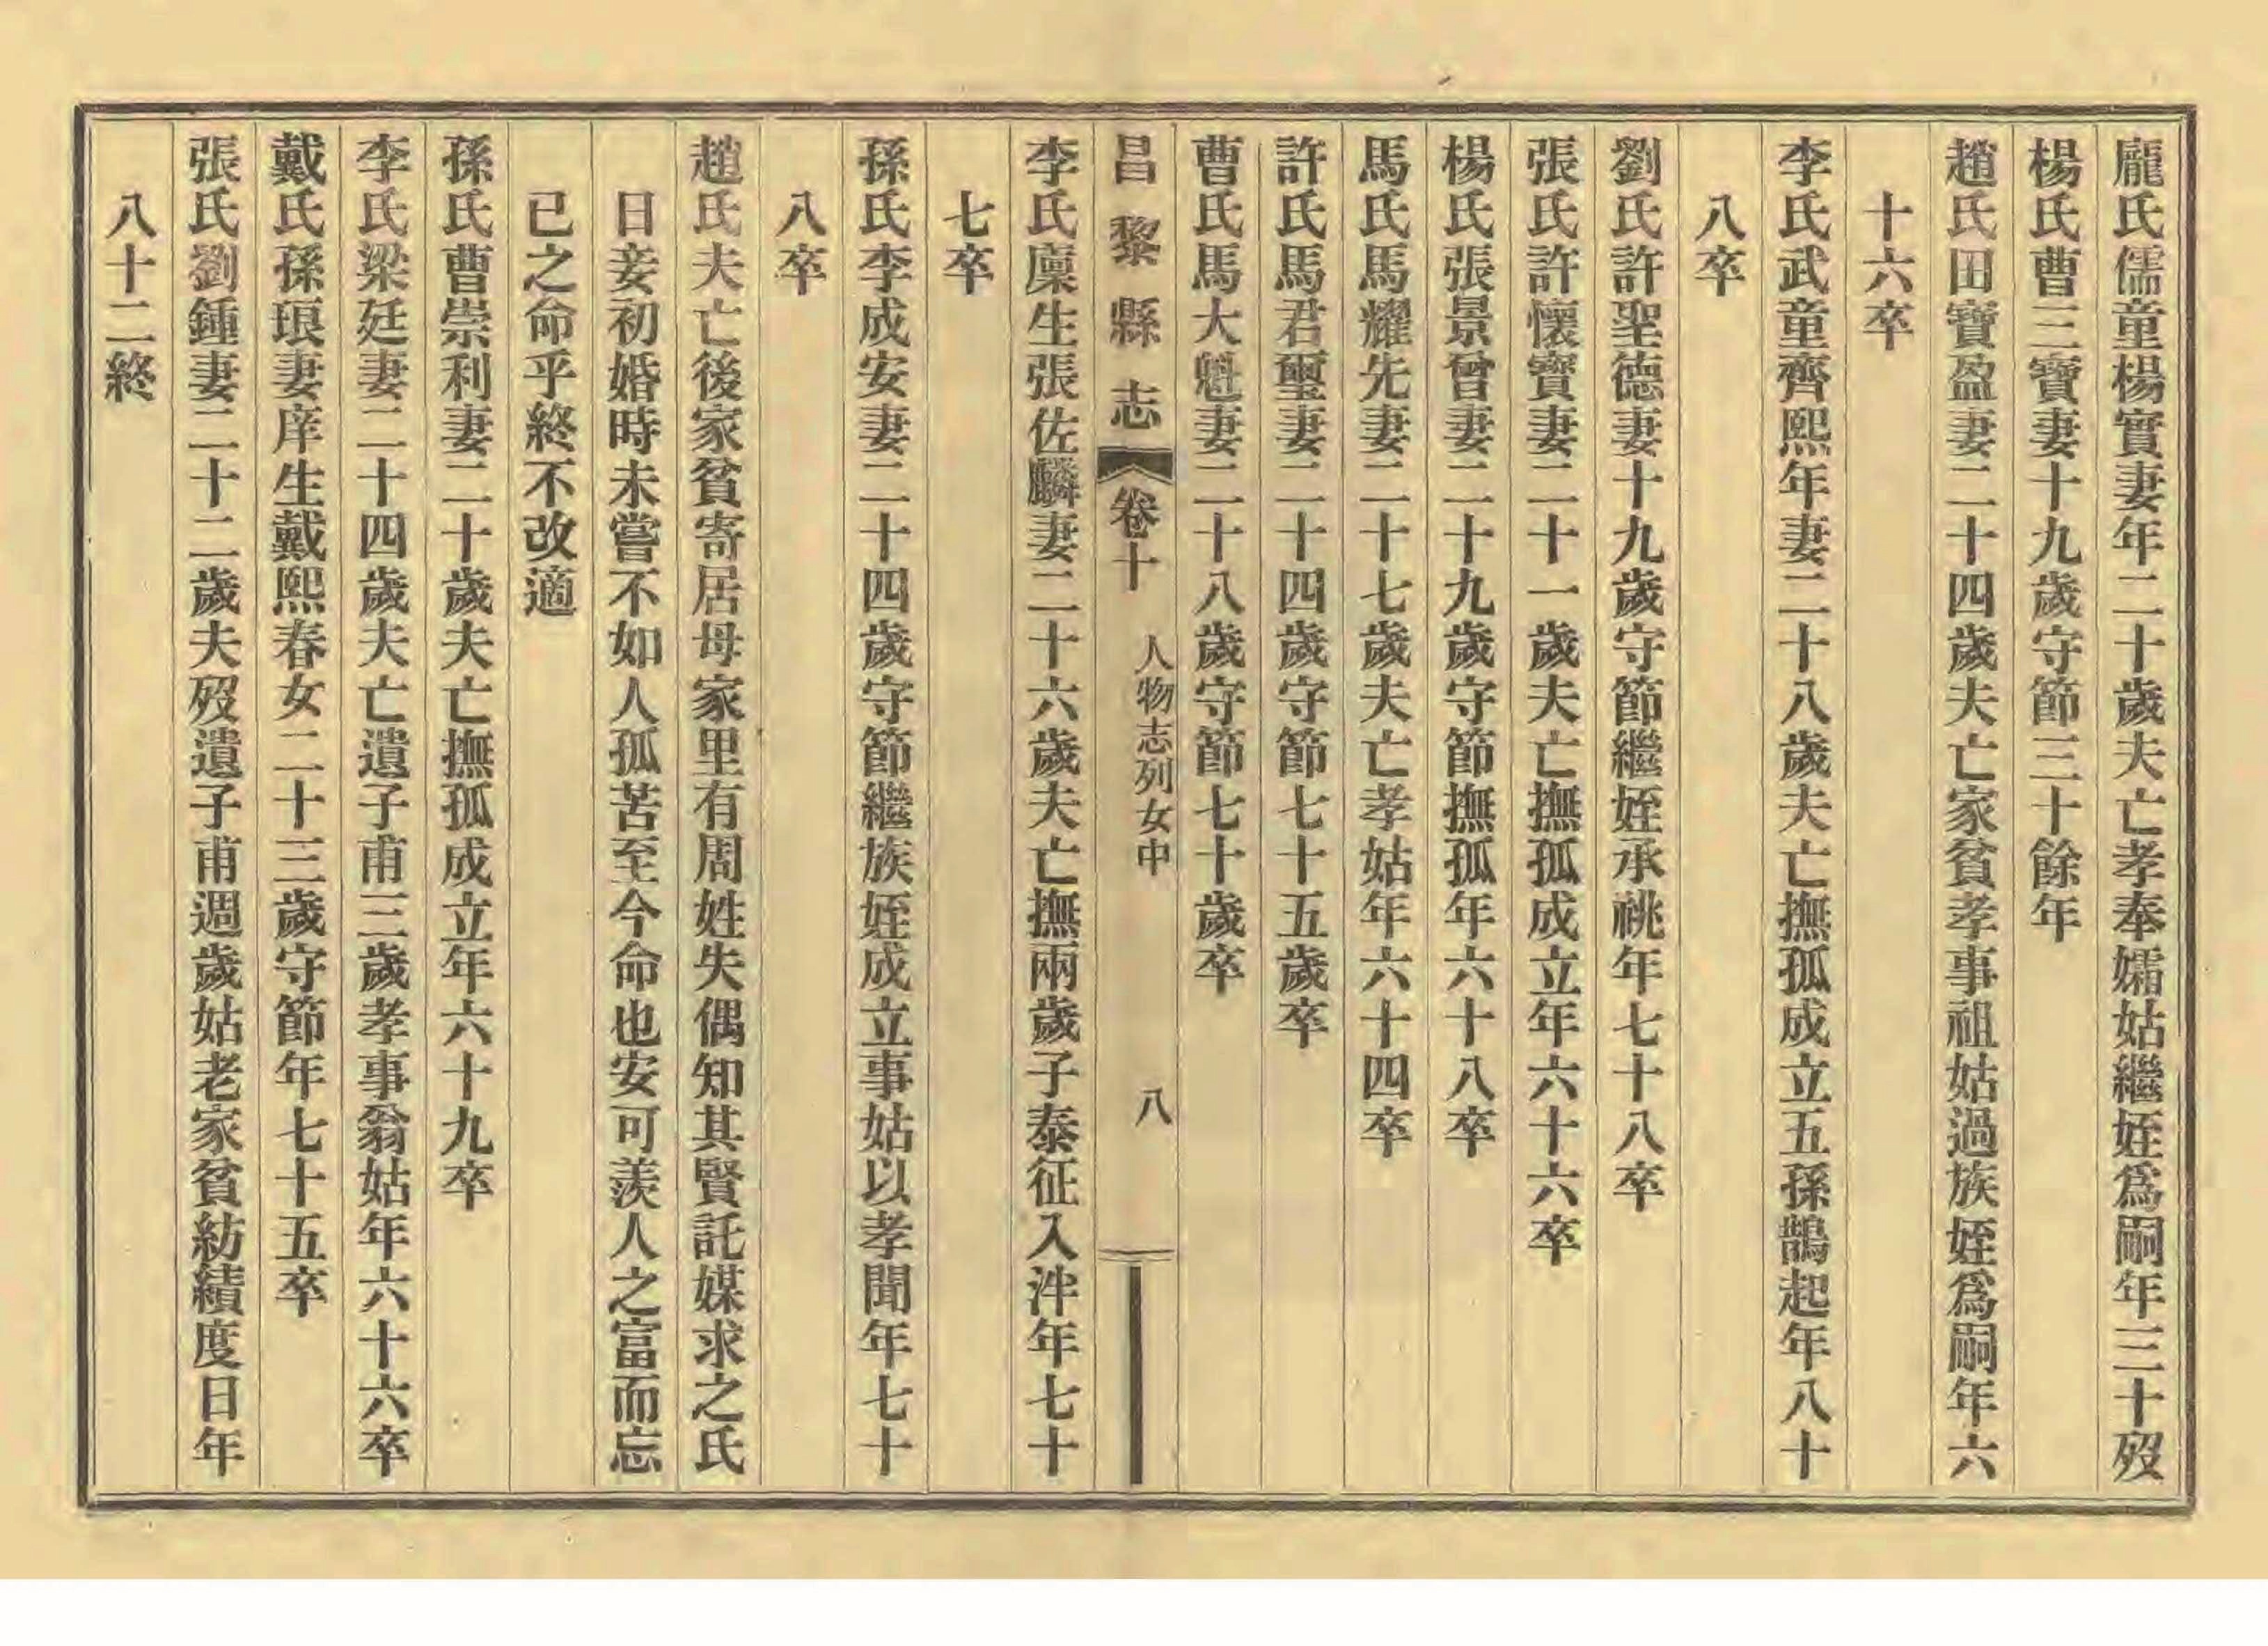 龐氏儒童楊實妻年二十歲夫亡孝奉孀姑繼姪爲嗣年三十歿
楊氏曹三寶妻十九歲守節三十餘年
趙氏田寶盈妻二十四歲夫亡家貧孝事祖姑過族姪爲嗣年六
十六卒
李氏武童齊熙年妻二十八歲夫亡撫孤成立五孫鵲起年八十
八卒
劉氏許聖德妻十九歲守節繼姪承祧年七十八卒
張氏許懷寶妻二十一歲夫亡撫孤成立年六十六卒
楊氏張景曾妻二十九歲守節撫孤年六十八卒
馬氏馬耀先妻二十七歲夫亡孝姑年六十四卒
許氏馬君璽妻二十四歲守節七十五歲卒
曹氏馬大魁妻二十八歲守節七十歲卒
昌黎縣志 卷十 人物志列女中 八
李氏廩生張佐麟妻二十六歲夫亡撫兩歲子泰征入泮年七十
七卒
孫氏李成安妻二十四歲守節繼族姪成立事姑以孝聞年七十
八卒
趙氏夫亡後家貧寄居母家里有周姓失偶知其賢託媒求之氏
日妾初婚時未嘗不如人孤苦至今命也安可羨人之富而忘
已之命乎終不改適
孫氏曹崇利妻二十歲夫亡撫孤成立年六十九卒
李氏梁廷妻二十四歲夫亡遺子甫三歲孝事翁姑年六十六卒
戴氏孫琅妻庠生戴熙春女二十三歲守節年七十五卒
張氏劉鍾妻二十二歲夫歿遺子甫週歲姑老家貧紡績度日年
八十二終